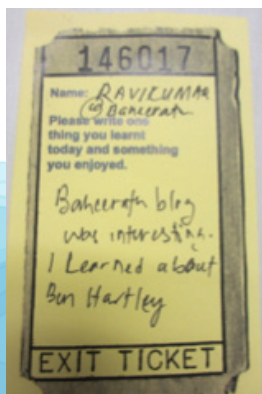 146017
Name: RAVIKUMAR
@Baheerath
Please write one
thing you learnt
today and something
you enjoyed.
Baheerath blog
was interesting.
I Learned about
Ben Hartley
EXIT TICKET